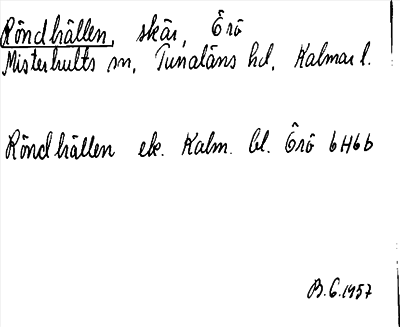 Röndhällen, skär, Örö
Misterhults sn, Tunaläns hd, Kalmar l.
Röndhällen ek. Kalm. bl. Örö 6H6b
B.G.1957